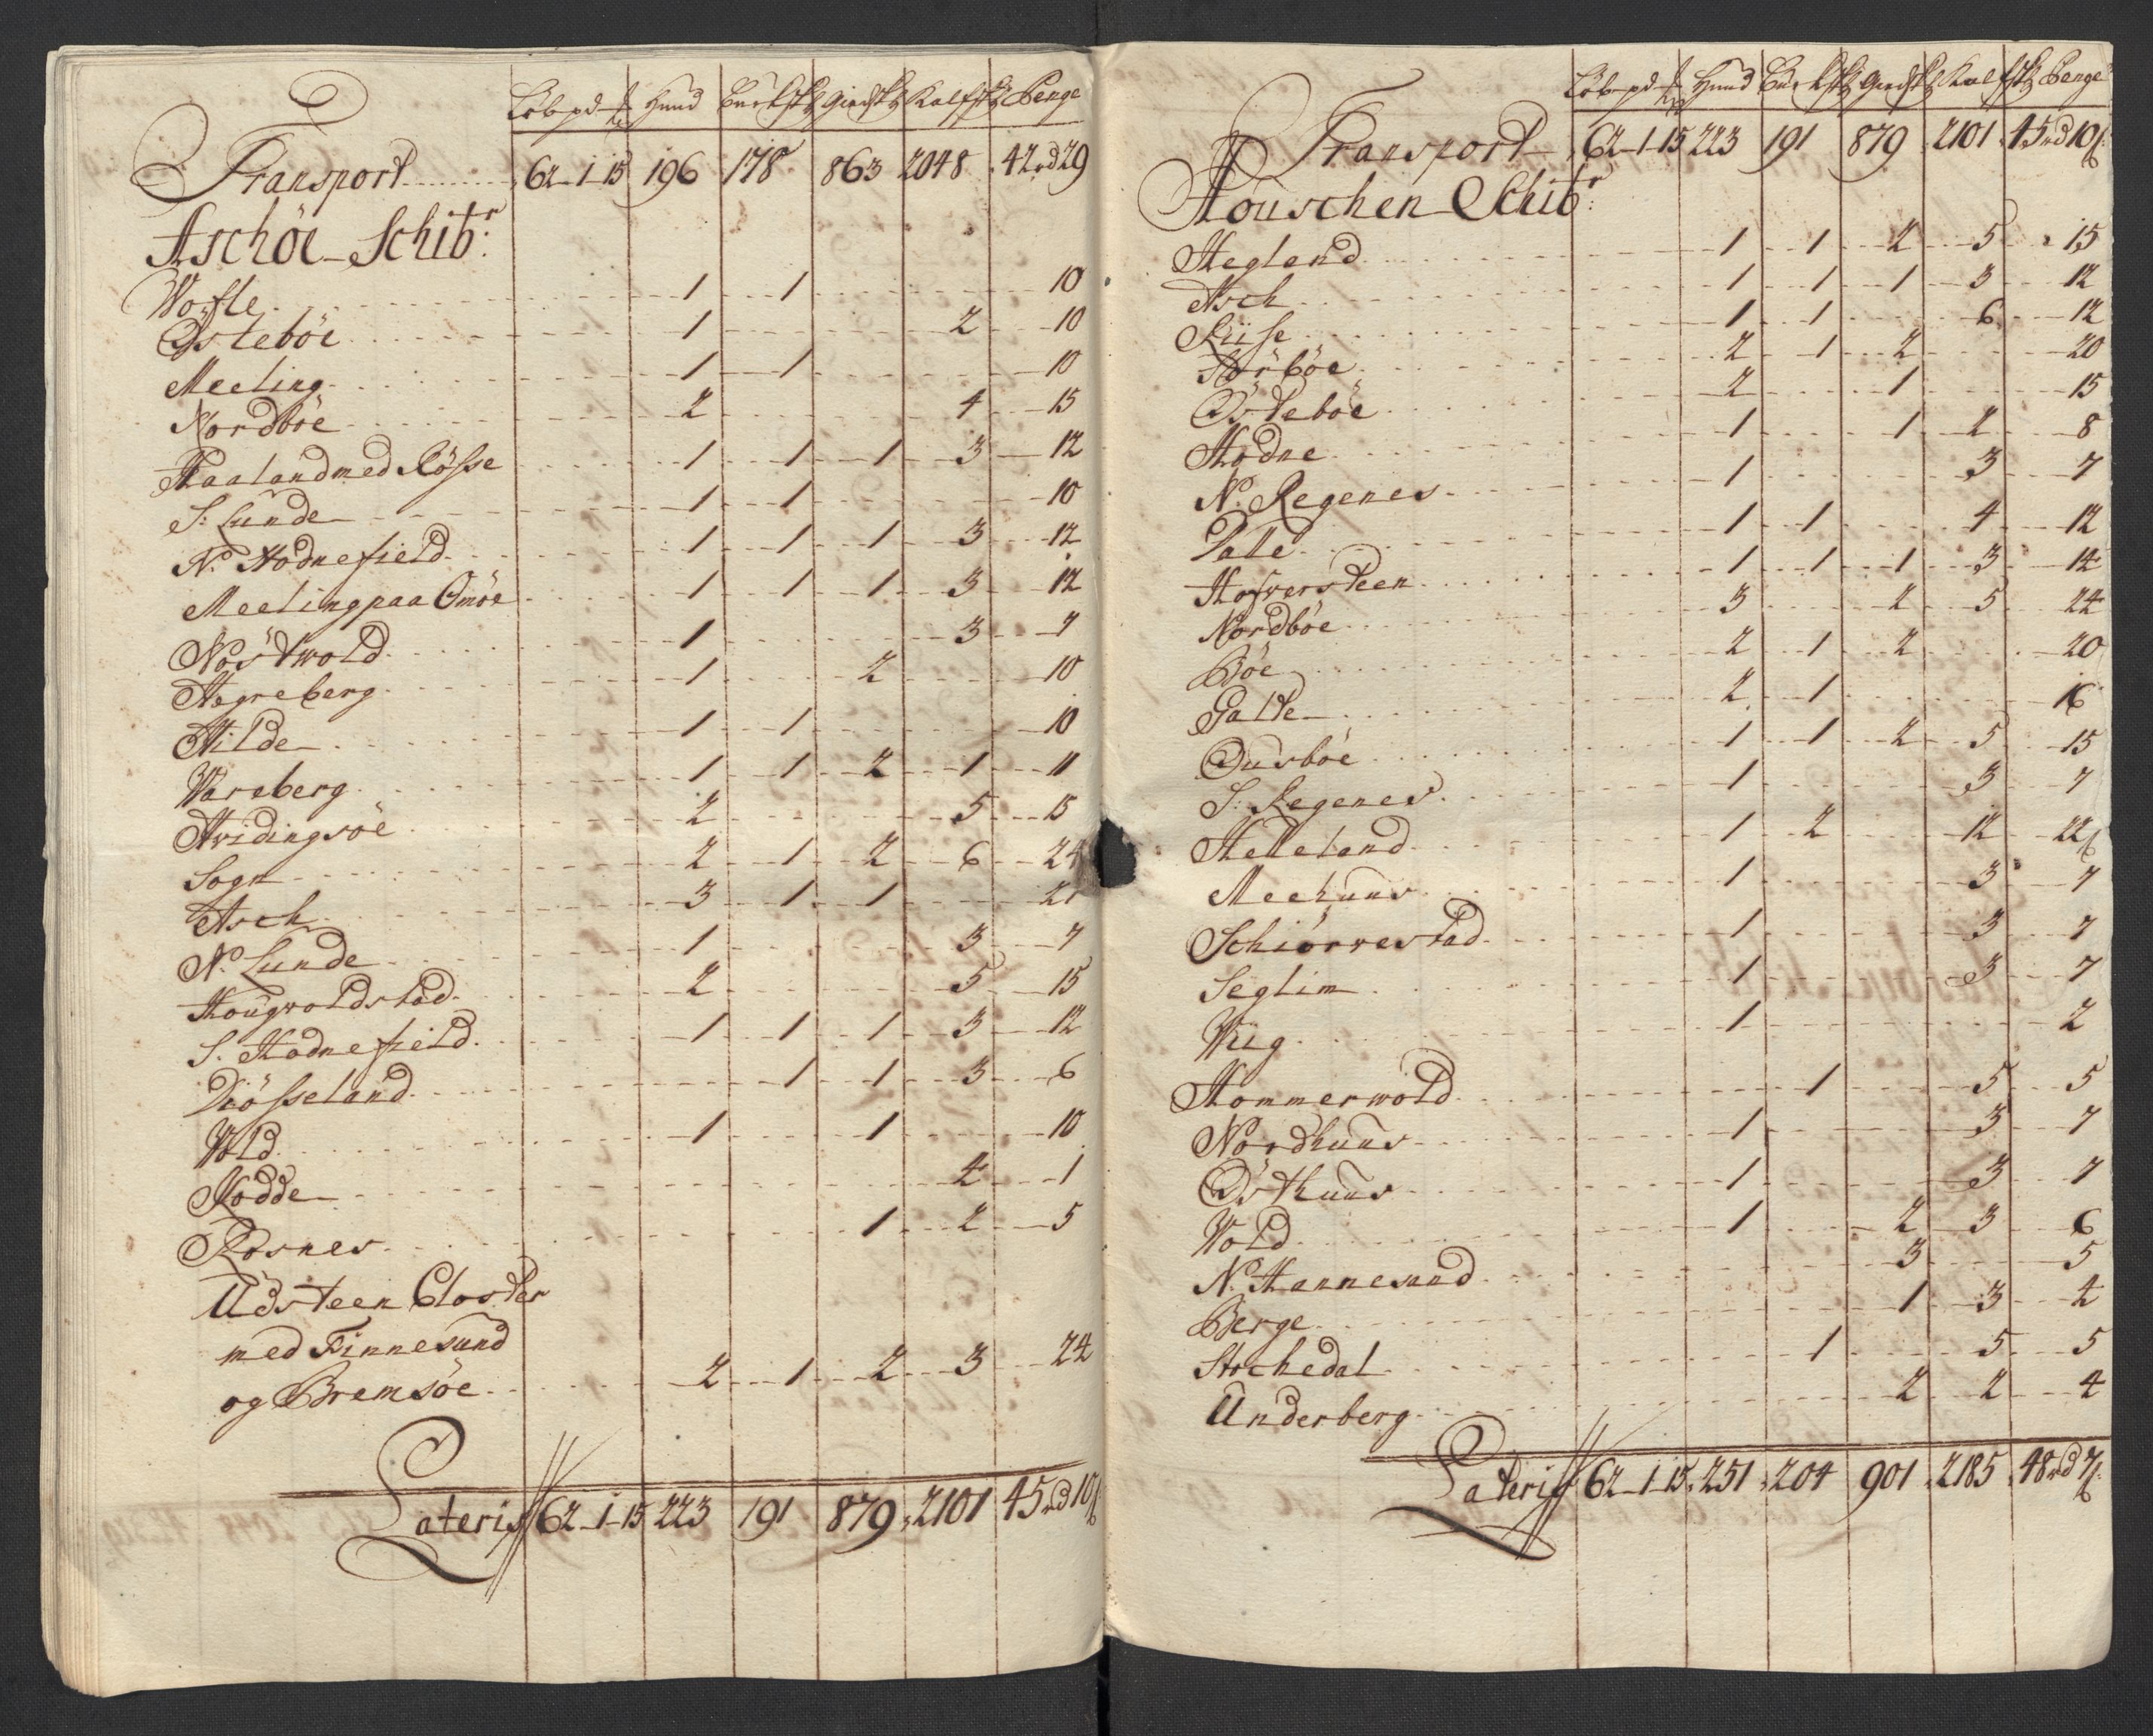 Løb pd Hud Bucksk Giedsk Kalfsk Penge
Transport 62-1-15 196 178 863 2048 42rd 29
Aschöe Schibr:
Wostle 1 1 10
Östeböe 1 2 10
Meeling 1 1 10
Nordböe 2 4 15
Haaland med Rösse 1 1 1 3 12
S: Lunde 1 1 10
N. Hodnefield 1 1 1 3 12
Meeling paa Omöe 1 1 1 3 12
Nöstwold 1 3 7
Hegreberg 1 2 10
Hilde 1 1 10
Wareberg 1 1 2 1 11
Hvidingsöe 2 5 15
Sogn 2 1 2 6 24
Asch 3 1 1 21
N. Lunde 1 3 7
Hougwoldstad 2 5 15
S. Hodnefield 1 1 1 3 12
Diösseland 1 1 3 6
Wold 1 1 10
Rödde 4 1
Rosnes 1 2 5
Udsteen Closter
med Finnesand
og Bremsöe 2 1 2 3 24
Lateris 62-1-15 223 191 879 2101 45rd 10s
Løb pd Hud Bucksk Giedsk Kalfsk Penge
Transport 62-1-15 223 191 879 2101 45rd 10s
Houschen Schibr:
Hegland 1 1 2 5 15
Asch 1 1 1 3 12
Riise 1 1 6 12
Sörböe 2 1 2 20
Östeböe 2 1 15
Hodne 1 1 2 8
N. Regenes 1 3 7
Dalle 1 1 4 12
Hofwersteen 1 1 1 3 14
Nordböe 3 2 5 24
Böe 2 1 2 20
Galte 2 1 16
Dusböe 1 1 2 5 15
S: Regenes 1 3 7
Helleland 1 2 12 22s
Meehuus 1 3 7
Schiörvestad 1 3 7
Seglim 1 3 7
Wiig 1 2
Hommerwold 1 5 5
Nordhuus 1 3 7
Östhuus 1 3 7
Wold 1 2 3 6
N. Hannesand 3 5
Berge 1 3 4
Stochedal 1 5 5
Underberg 2 2 4
Lateris 62-1-15 251 204 901 2185 48rd 7s